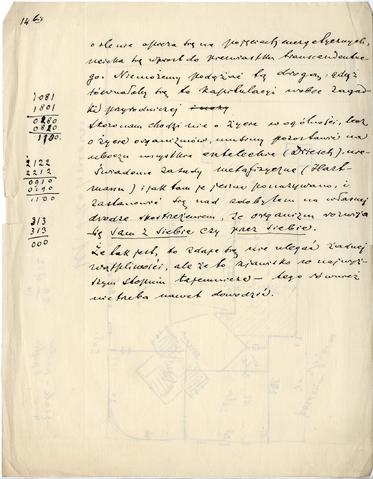 14
o ile nie opiera się na pojęciach energetycznych,
ucieka się wprost do pierwiastka transcendentne-
go. Niemożemy podążać tą drogą, gdyż
równałoby się to kapitulacji wobec zagad-
ki przyrodniczej
Skoro nam chodzi nie o życie w ogólności, lecz
o życie organizmów, musimy pozostawić na
uboczu wszystkie entelechie (Driesch), nie-
świadome zasady metafizyczne (Hart-
mann) i jak tam je jeszcze ponazywano, i
zastanowić się nad zdobytem na własnej
drodze spostrzeżeniem, że organizm rozwija
się sam z siebie czy przez siebie.
Że tak jest, to zdaje się nie ulegać żadnej
wątpliwości, ale że to zjawisko w najwyż-
szym stopniu tajemnicze — tego również
nie trzeba nawet dowodzić.
1081
1801
0260
0820
1100.
2122
2212
0910
0190
1100
313
313
000